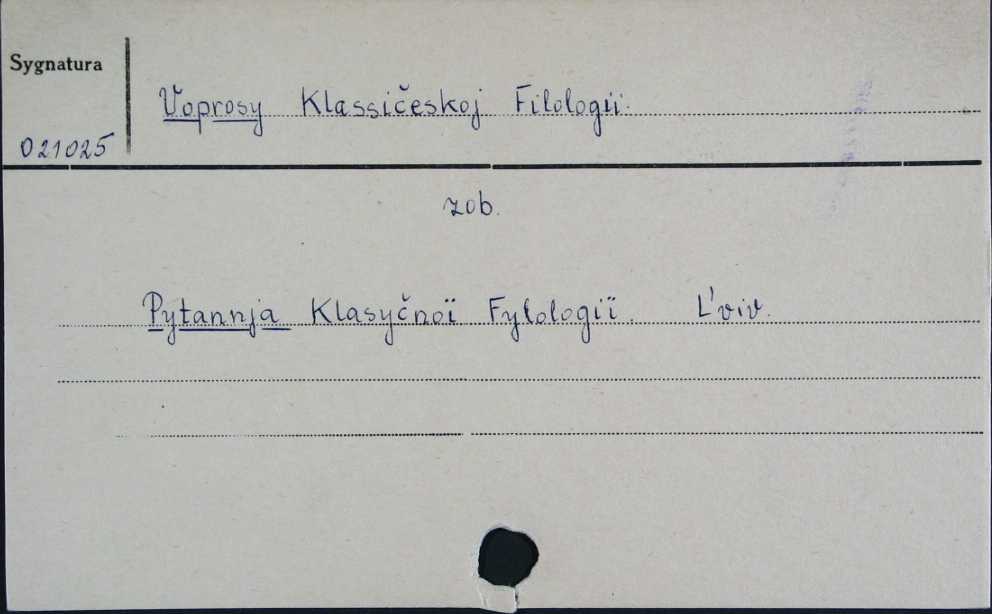 Sygnatura
Voprosy Klassičeskoj Filologii.
021025
zob.
Pytannja Klasyčnoï Fylologiï. L'viv.